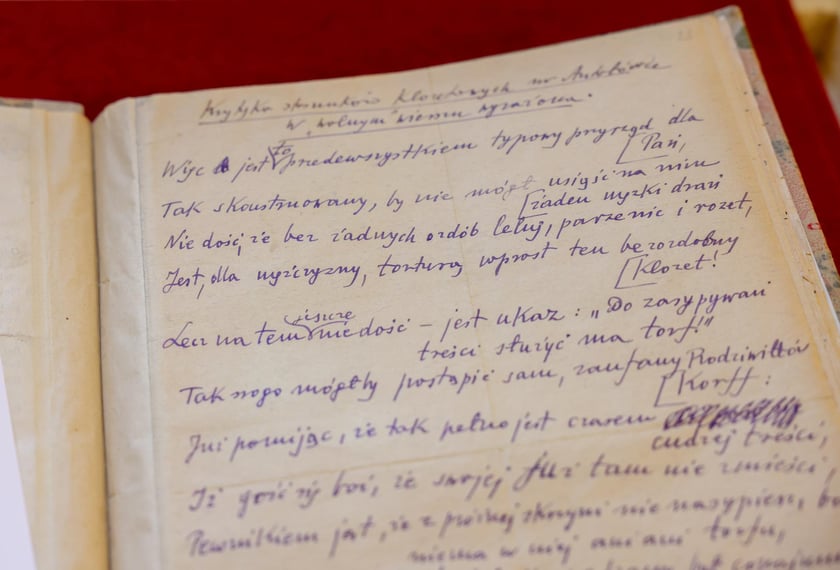 Krytyka stosunków klozetowych na Antołówce
w "wolnym" wierszu wyrażona.
Więc jest to przedewszystkiem typowy przyrząd dla
[Pań,
Tak skonstruowany, by nie mógł usiąść na nim
[żaden męzki drań
Nie dość, że bez żadnych ozdób leluj, parzenic i rozet,
Jest, dla mężczyzny, torturą wprost ten bezozdobny
[Klozet!
Lecz na tem jeszcze nie dość – jest ukaz: „Do zasypywań
treści służyć ma torf!"
Tak srogo mógłby postąpić sam, zaufany Radziwiłłów
[Korff:
Już pomijając, że tak pełno jest czasem
cudzej treści,
Iż gość się boi, że swojej już tam nie zmieści,
Pewnikiem jest, że z próżnej skrzyni nie nasypiesz, bo
niema w niej ani ani torfu,